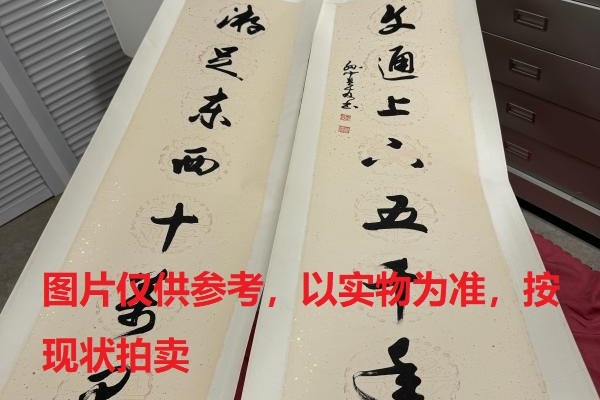 文通上下五千年
游足东西十
图片仅供参考，以实物为准，按
现状拍卖